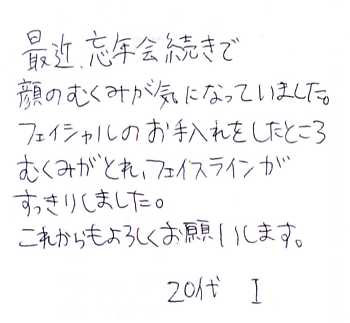 最近、忘年会続きで
顔のむくみが気になっていました。
フェイシャルのお手入れをしたところ
むくみがとれ、フェイスラインが
すっきりしました。
これからもよろしくお願いします。
20代 I